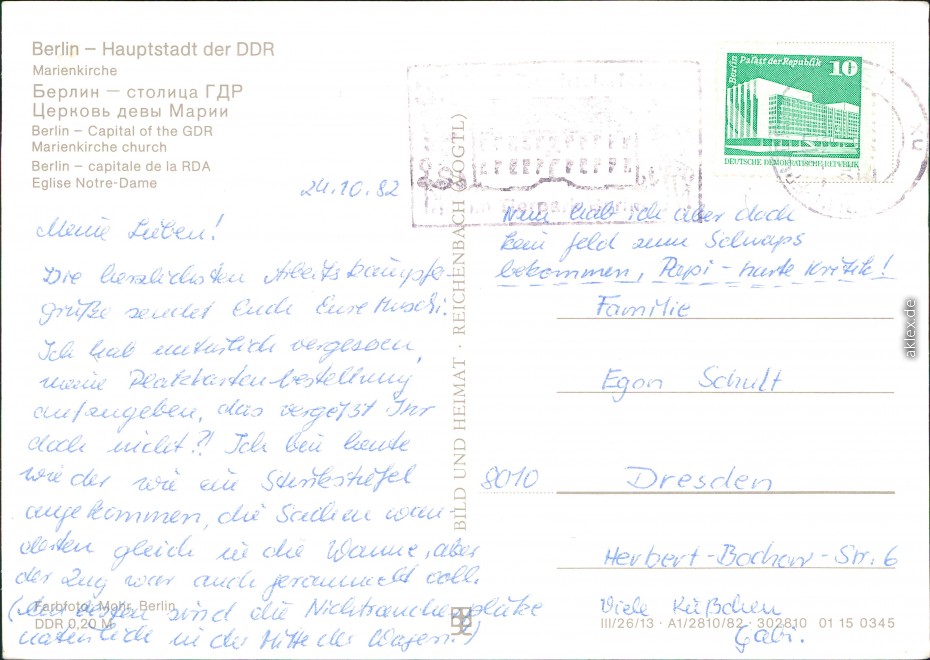 Berlin – Hauptstadt der DDR
Marienkirche
Берлин — столица ГДР
Церковь девы Марии
Berlin – Capital of the GDR
Marienkirche church
Berlin – capitale de la RDA
Eglise Notre-Dame
24.10.82
Meine Lieben!
Die herzlichsten Arbeitskampfs-
grüße sendet Euch Eure Muschi.
Ich hab natürlich vergessen,
meine Platzkartenbestellung
aufzugeben, das vergeßt Ihr
doch nicht?! Ich bin heute
wieder wie ein Stinkstiefel
angekommen, die Sachen wan-
derten gleich in die Wanne, aber
der Zug war auch gerammelt voll.
(Am besten sind die Nichtraucherplätze
natürlich in der Mitte des Wagens!)
Farbfoto: Mohr, Berlin
DDR 0,20 M
BILD UND HEIMAT · REICHENBACH (VOGTL)
Berlin Palast der Republik 10
DEUTSCHE DEMOKRATISCHE REPUBLIK
Nun hab ich aber doch
kein Geld zum Schnaps
bekommen, Papi – harte Kritik!
Familie
Egon Schult
8010 Dresden
Herbert-Bochow-Str. 6
Viele Küßchen
Gabi.
III/26/13 · A1/2810/82 · 302810 01 15 0345
aklex.de